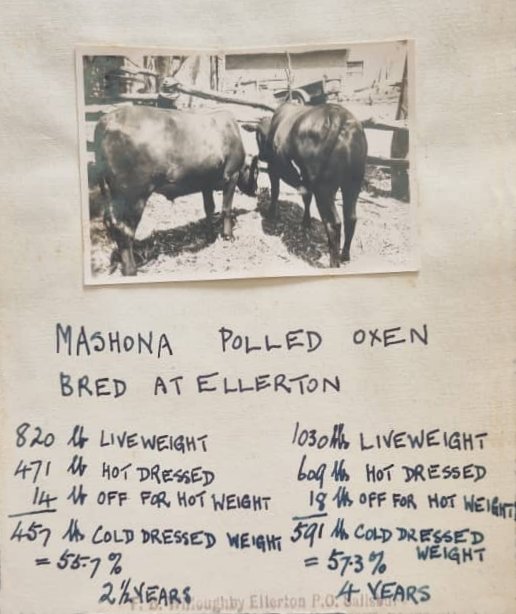 MASHONA POLLED OXEN
BRED AT ELLERTON
820 lb LIVEWEIGHT
471 lb HOT DRESSED
14 lb OFF FOR HOT WEIGHT
457 lb COLD DRESSED WEIGHT
= 55.7 %
2½ YEARS
1030 lbs LIVEWEIGHT
609 lbs HOT DRESSED
18 lbs OFF FOR HOT WEIGHT
591 lbs COLD DRESSED
WEIGHT
= 57.3 %
4 YEARS
Willoughby Ellerton P.O.